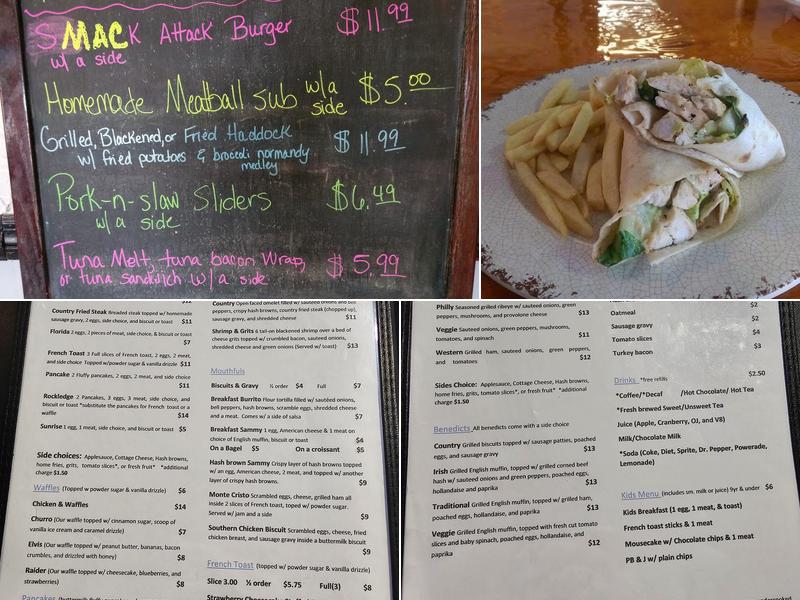 SMACK Attack Burger $11.99
w/ a side
Homemade Meatball Sub w/a side $5.00
Grilled, Blackened, or Fried Haddock $11.99
w/ fried potatoes & brocoli normandy
medley
Pork-n-slaw Sliders $6.49
w/ a side
Tuna Melt, tuna bacon Wrap, $5.99
or tuna sandwich w/ a side
Country Fried Steak Breaded steak topped w/ homemade
sausage gravy, 2 eggs, side choice, and biscuit or toast $11
Florida 2 eggs, 2 pieces of meat, side choice, & biscuit or toast
$7
French Toast 3 Full slices of French toast, 2 eggs, 2 meat,
and side choice Topped w/powder sugar & vanilla drizzle $11
Pancake 2 Fluffy pancakes, 2 eggs, 2 meat, and side choice
$11
Rockledge 2 Pancakes, 3 eggs, 3 meat, side choice, and
biscuit or toast *substitute the pancakes for French toast or a
waffle $14
Sunrise 1 egg, 1 meat, side choice, and biscuit or toast $5
Side choices: Applesauce, Cottage Cheese, Hash browns,
home fries, grits, tomato slices*, or fresh fruit* *additional
charge $1.50
Waffles (Topped w powder sugar & vanilla drizzle) $6
Chicken & Waffles $14
Churro (Our waffle topped w/ cinnamon sugar, scoop of
vanilla ice cream and caramel drizzle) $7
Elvis (Our waffle topped w/ peanut butter, bananas, bacon
crumbles, and drizzled with honey) $8
Raider (Our waffle topped w/ cheesecake, blueberries, and
strawberries) $8
Country Open faced omelet filled w/ sauteed onions and bell
peppers, crispy hash browns, country fried steak (chopped up),
sausage gravy, and shredded cheese $11
Shrimp & Grits 6 tail-on blackened shrimp over a bed of
cheese grits topped w/ crumbled bacon, sauteed onions,
shredded cheese and green onions (Served w/ toast) $13
Mouthfuls
Biscuits & Gravy ½ order $4 Full $7
Breakfast Burrito Flour tortilla filled w/ sauteed onions,
bell peppers, hash browns, scramble eggs, shredded cheese
and a meat. Comes w/ a side of salsa $7
Breakfast Sammy 1 egg, American cheese & 1 meat on
choice of English muffin, biscuit or toast $4
On a Bagel $5 On a croissant $5
Hash brown Sammy Crispy layer of hash browns topped
w/ an egg, American cheese, 2 meat, and topped w/ another
layer of crispy hash browns. $9
Monte Cristo Scrambled eggs, cheese, grilled ham all
inside 2 slices of French toast, toped w/ powder sugar.
Served w/ jam and a side $9
Southern Chicken Biscuit Scrambled eggs, cheese, fried
chicken breast, and sausage gravy inside a buttermilk biscuit
$9
French Toast (topped w/ powder sugar & vanilla drizzle)
Slice 3.00 ½ order $5.75 Full(3) $8
Philly Seasoned grilled ribeye w/ sauteed onions, green
peppers, mushrooms, and provolone cheese $13
Veggie Sauteed onions, green peppers, mushrooms,
tomatoes, and spinach $11
Western Grilled ham, sauteed onions, green peppers,
and tomatoes $12
Sides Choice: Applesauce, Cottage Cheese, Hash browns,
home fries, grits, tomato slices*, or fresh fruit* *additional
charge $1.50
Benedicts All benedicts come with a side choice
Country Grilled biscuits topped w/ sausage patties, poached
eggs, and sausage gravy $13
Irish Grilled English muffin, topped w/ grilled corned beef
hash w/ sauteed onions and green peppers, poached eggs,
hollandaise and paprika $13
Traditional Grilled English muffin, topped w/ grilled ham,
poached eggs, hollandaise, and paprika $13
Veggie Grilled English muffin, topped with fresh cut tomato
slices and baby spinach, poached eggs, hollandaise, and
paprika $12
$2
Oatmeal $2
Sausage gravy $4
Tomato slices $3
Turkey bacon
Drinks *free refills $2.50
*Coffee/*Decaf /Hot Chocolate/ Hot Tea
*Fresh brewed Sweet/Unsweet Tea
Juice (Apple, Cranberry, OJ, and V8)
Milk/Chocolate Milk
*Soda (Coke, Diet, Sprite, Dr. Pepper, Powerade,
Lemonade)
Kids Menu (includes sm. milk or juice) 9yr & under $6
Kids Breakfast (1 egg, 1 meat, & toast)
French toast sticks & 1 meat
Mousecake w/ Chocolate chips & 1 meat
PB & J w/ plain chips